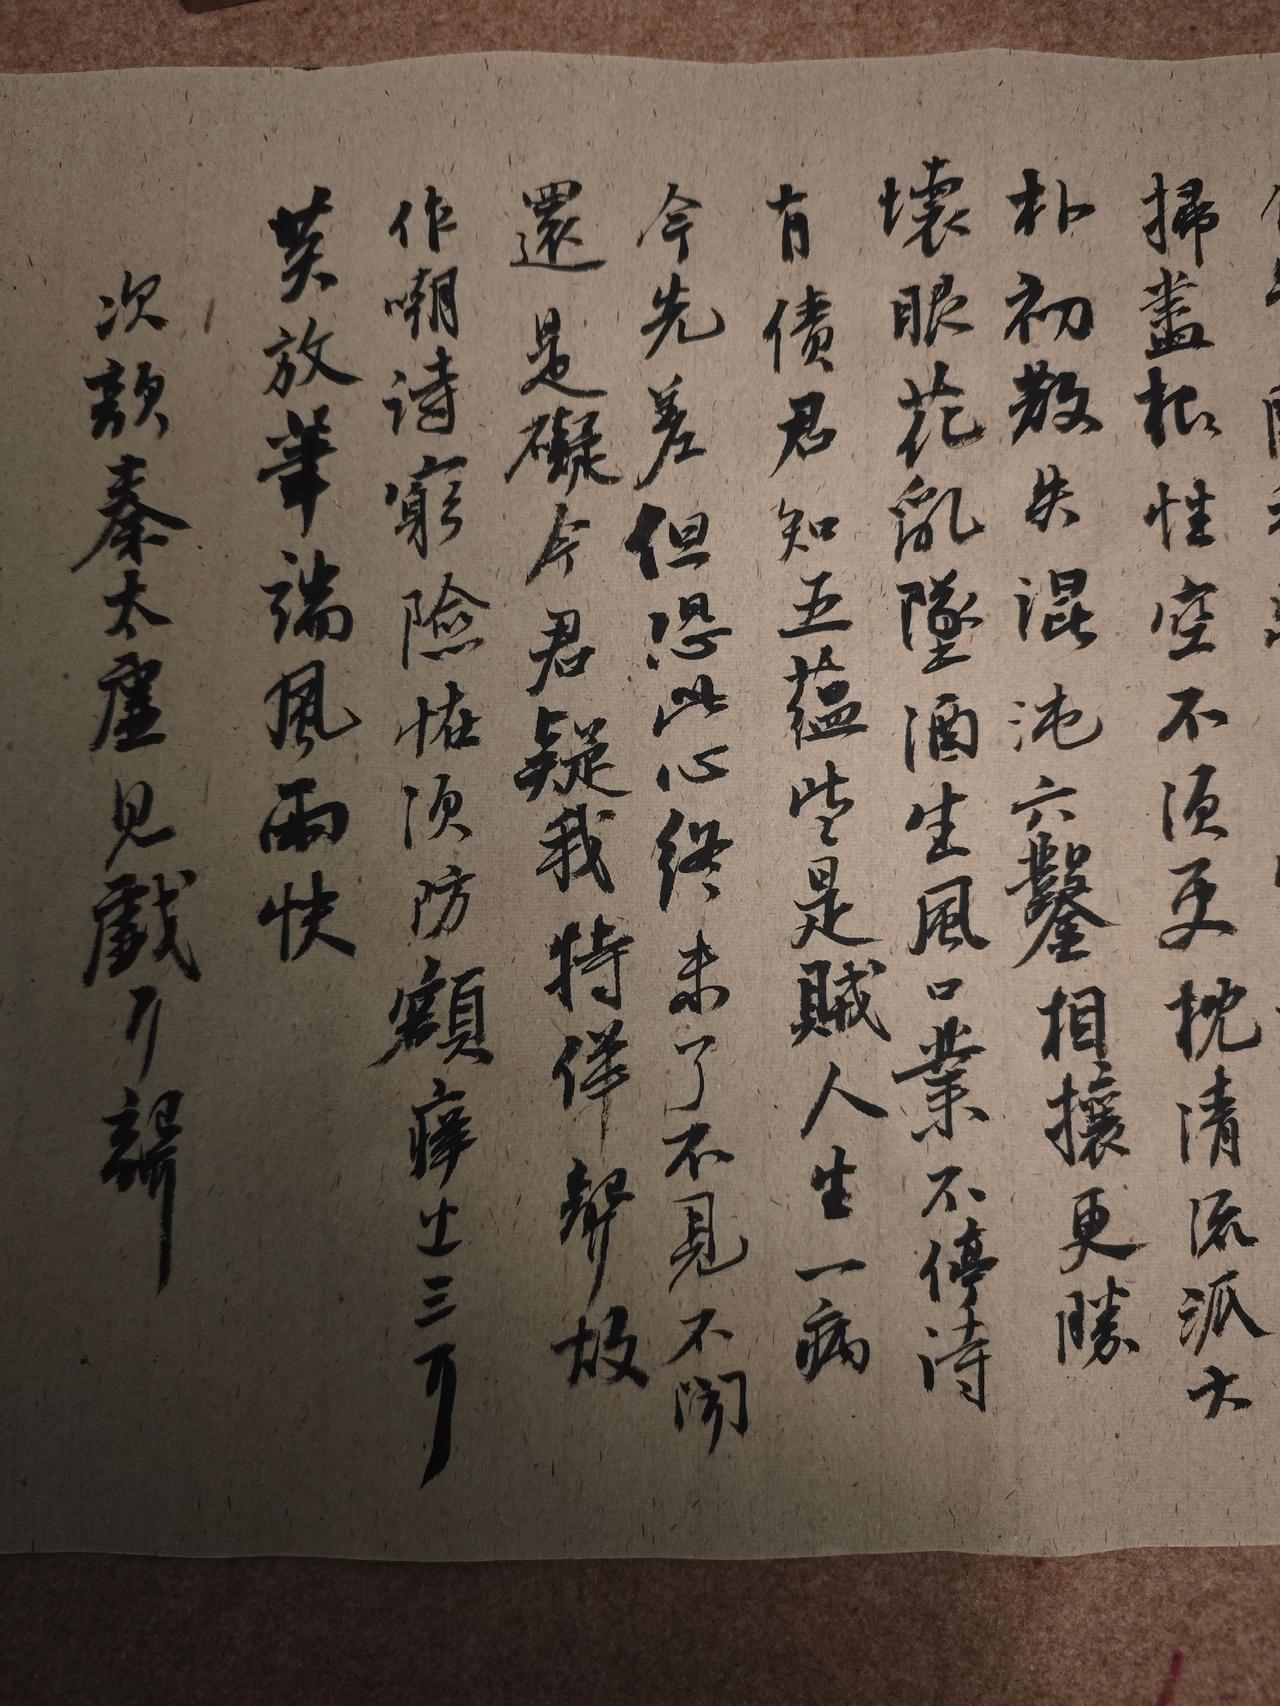 掃盡根性空不須更枕清流派大
朴初散失混沌六鑿相攘更勝
壞眼花亂墜酒生風口業不停詩
有債君知五蘊皆是賊人生一病
今先差但恐此心終未了不見不聞
還是礙今君疑我特佯聾故
作嘲詩窮險怪須防額痒出三耳
莫放筆端風雨快
次韻秦太虛見戲耳聾